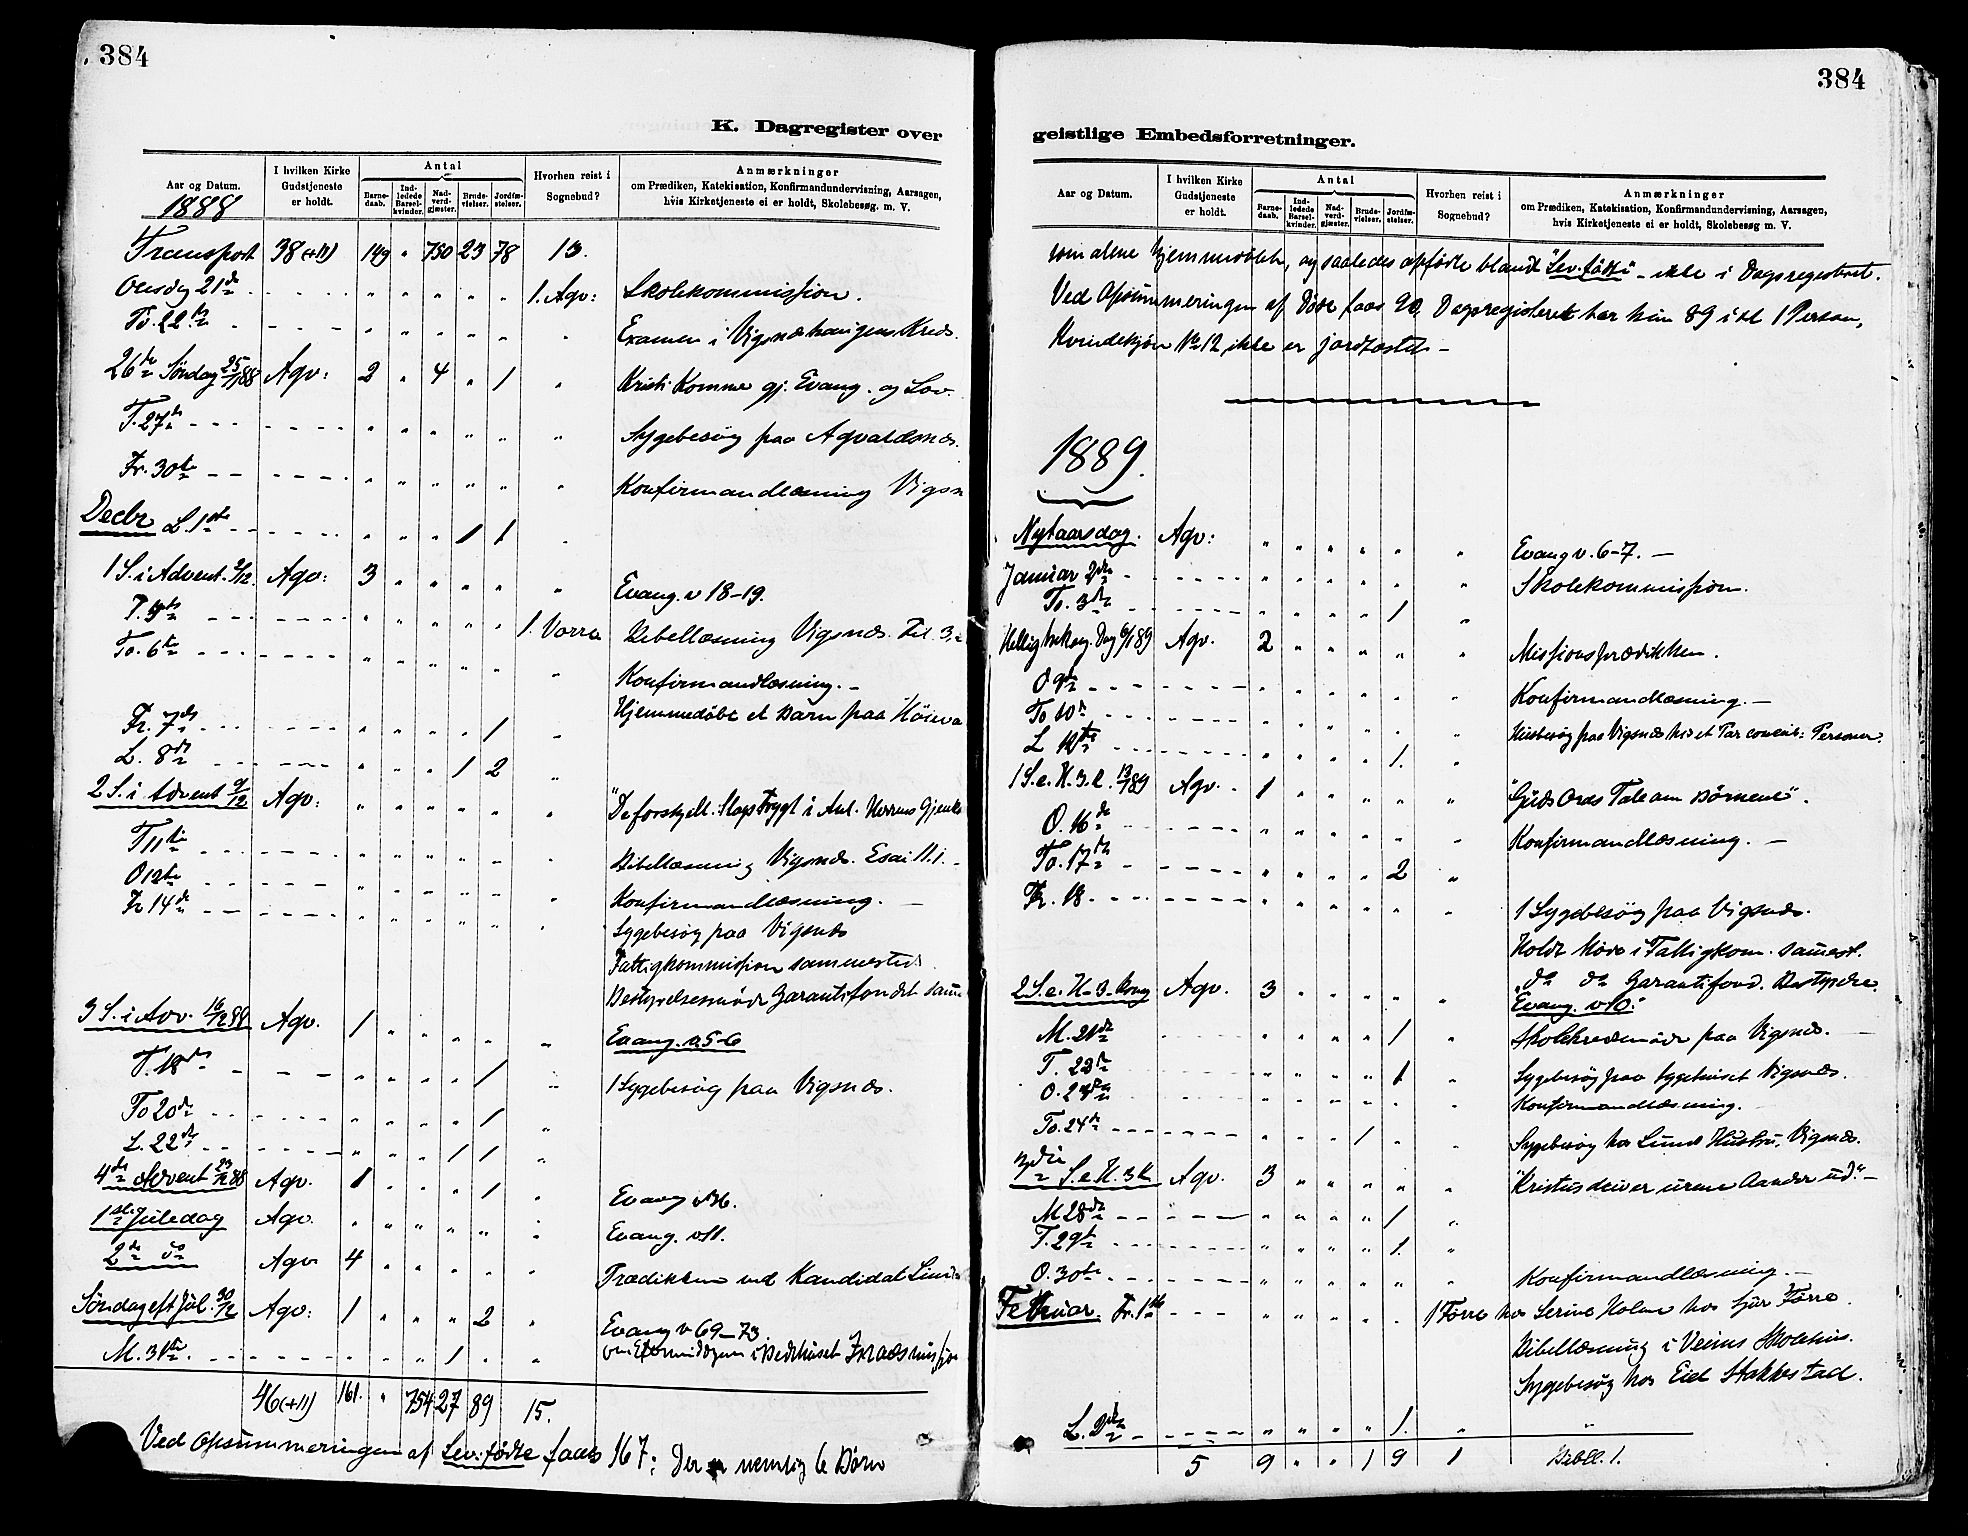 384
K. Dagregister over
Aar og Datum. I hvilken Kirke Gudstjeneste er holdt. Antal Barnedaab. Indledede Barselkvinder. Nadverdgjæster. Brudevielser. Jordfæstelser. Hvorhen reist i Sognebud? Anmærkninger om Prædiken, Katekisation, Konfirmandundervisning, Aarsagen, hvis Kirketjeneste ei er holdt, Skolebesøg m. V.
1888
Transport 38 (+11) 149 " 750 23 78 13.
Onsdag 21de " " " " " 1. Agv: Skolekommission.
To. 22de " " " " " " Examen i Vigsnæshaugens Kreds.
26de Søndag 25/11 88 Agv: 2 " 4 " 1 " Kristi Komme gj. Evang. og Lov.
T. 27de " " " " " " Sygebesøg paa Agvaldsnæs.
Fr. 30te " " " " " " Konfirmandlæsning Vigsn
Decbr L. 1ste " " " 1 1 "
1 S. i Advent. 2/12 Agv: 3 " " " " " Evang. v 18-19.
T. 4de " " " " " 1. Vorre Bibellæsning Vigsnæs. Tit. 3.
To. 6te " " " " " " Konfirmandlæsning. -
Hjemmedøbt et Barn paa
Fr. 7de " " " " 1 "
L. 8de " " " 1 2 "
2 S. i Advent 9/12 Agv: " " " " " " "De forskjell. Slags Frygt i Anl. Herrens
T 11te " " " " " " Bibellæsning Vigsnæs. Esai 11.1. -
O 12te " " " " " " Konfirmandlæsning. -
Fr 14de " " " " " " Sygebesøg paa Vigsnæs
Fattigkommission sammesteds
Bestyrelsesmøde Garantifondet samm
3 S. i Adv. 16/12 88 Agv. 1 " " " " " Evang. v. 5-6
T. 18de " " " " 1 " 1 Sygebesøg paa Vigsnæs.
To 20de " " " " 1 "
L. 22de " " " 1 1 "
4de Advent 23/12 88 Agv. 1 " " " 1 " Evang v 36.
1ste Juledag Agv. " " " " " " Evang. v 11.
2de do Agv 4 " " " " " Prædikken ved Kandidat
Søndag eft Jul. 30/12 Agv: 1 " " " 2 " Evang v 69-73.
M. 31te. " " " 1 " " om Eftermiddagen i Bedehuset
46 (+11) 161. " 754 27 89 15.
Ved Opsummeringen af Lev. fødte faaes 167; Der er nemlig 6 Børn
384
geistlige Embedsforretninger.
Aar og Datum. I hvilken Kirke Gudstjeneste er holdt. Antal Barnedaab. Indledede Barselkvinder. Nadverdgjæster. Brudevielser. Jordfæstelser. Hvorhen reist i Sognebud? Anmærkninger om Prædiken, Katekisation, Konfirmandundervisning, Aarsagen, hvis Kirketjeneste ei er holdt, Skolebesøg m. V.
som alene hjemmedøbte, og saaledes opførte blandt "Lev. fødte" - ikke i Dagregistret.
Ved Opsummeringen af Døde faaes 90, Dagregisteret har kun 89 idet 1 Person,
Kvindekjøn No 12, ikke er jordfæstet -
1889.
Nytaarsdag. Agv: " " " " " " Evang v. 6-7. -
Januar 2den " Skolekommission.
To. 3de " " " " 1 "
Hellig trek. Dag 6/1 89 Agv. 2 " " " " " Missionsprædikken.
O 9de " " " " " " Konfirmandlæsning. -
To 10de " " " " " " Husbesøg paa Vigsnæs hos et Par Personer.
L 12te " " " " 1. "
1 S. e. H. 3. K. 13/1 89 Agv. 1 " " " " " "Guds Ords Tale om Børnene".
O. 16de " " " " " " Konfirmandlæsning. -
To. 17de " " " " 2 "
Fr. 18 " " " " " " 1 Sygebesøg paa Vigsnæs.
Holdt Møde i Fattigkom. sammest.
do do Garantifond. Bestyrelse.
2 S. e. H. 3 Kong Agv. 3 " " " " " Evang. v 10.
M. 21de " " " " 1 " Skolekredsmøde paa Vigsnæs. -
T. 22de " " " " 1 " Sygebesøg paa Sygehuset Vigsnæs.
O. 23de " " " " " " Konfirmandlæsning.
To. 24de " " " 1 " " Sygebesøg hos Lunds Hustru, Vigsnæs.
3die S. e H. 3 K Agv. 3 " " " " " "Kristus driver urene Aander ud". -
M 28de " " " " 1 "
T. 29de " " " " 1. "
O. 30te " " " " " " Konfirmandlæsning. -
Februar. Fr. 1ste " " " " " 1 Førre hos Serine Holm hos Sjur Førre.
Bibellæsning i Skolehus.
Sygebesøg hos Eid Stakkestad.
L. 2den " " " " 1. " "
5 9 " " 1 9 1 Bibell. 1.